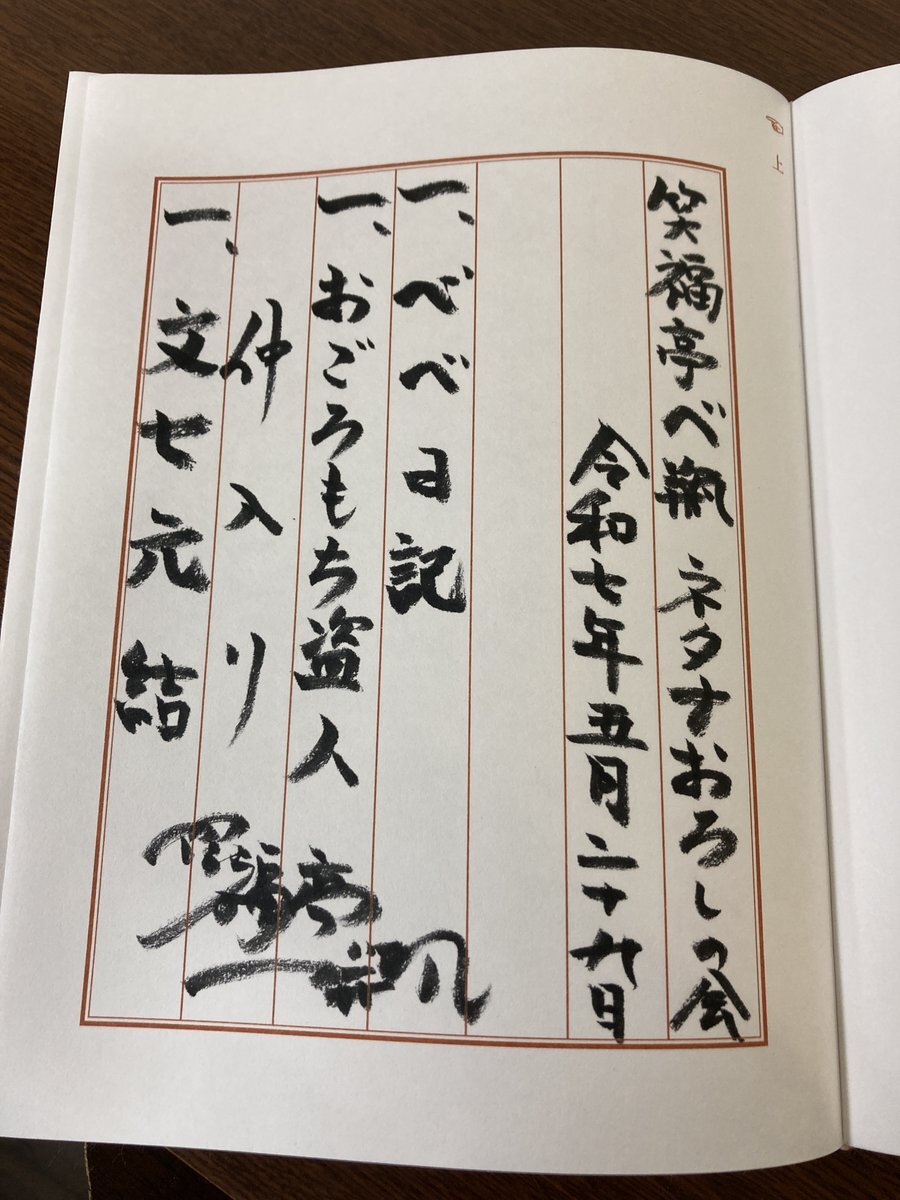 笑福亭べ瓶 ネタおろしの会
令和七年五月二十九日
一、べべ日記
一、おごろもち盗人
仲入り
一、文七元結
上